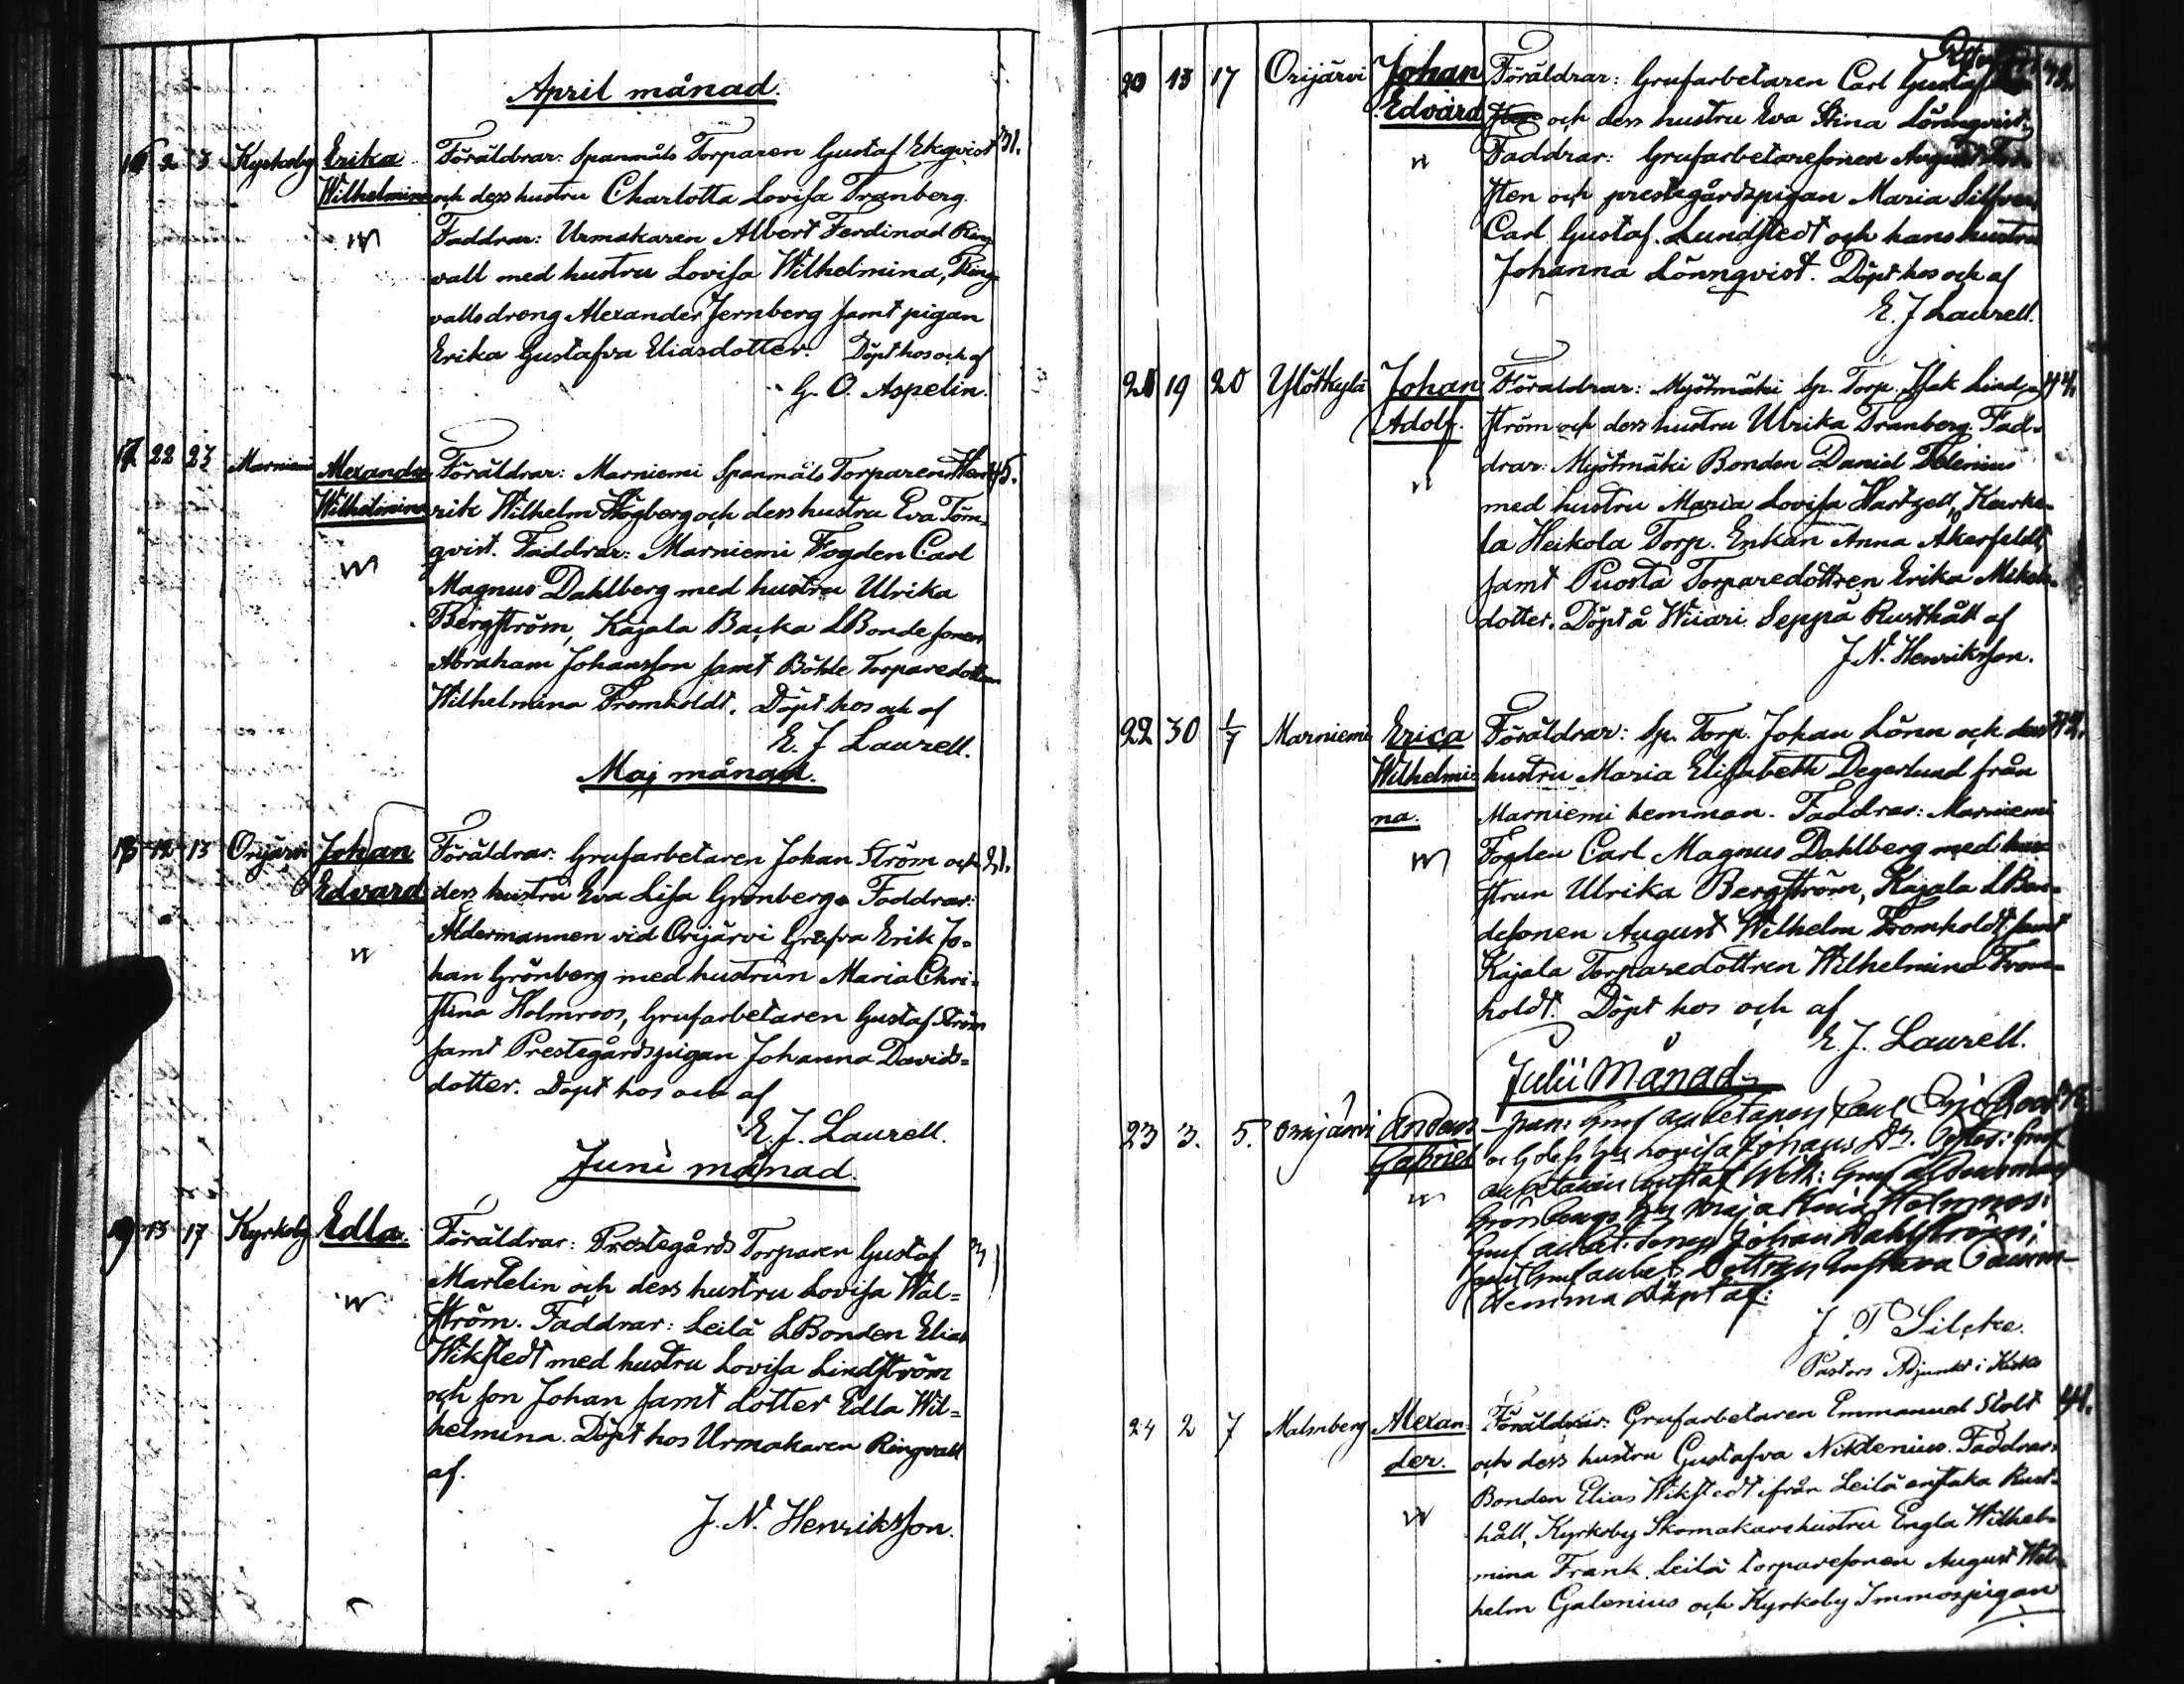 April månad.
16 2 3 Kyrkoby Erika Föräldrar: Spanmåls Torparen Gustaf Ekqvist 31.
Wilhelmina och dess hustru Charlotta Lovisa Tranberg.
Faddrar: Urmakaren Albert Ferdinad Ring
vall med hustru Lovisa Wilhelmina, Ring
valls dreng Alexander Jernberg samt pigan
Erika Gustafva Eliasdotter. Döpt hos och af
G. O. Aspelin.
17 22 23 Marniemi Alexandra Föräldrar: Marniemi Spanmåls Torparen Hen 45.
Wilhelmina rik Wilhelm Högberg och dess hustru Eva Törn
qvist. Faddrar: Marniemi Fogden Carl
Magnus Dahlberg med hustru Ulrika
Bergström, Kajala Backa LBonde sonen
Abraham Johansson samt Böhle Torparedottren
Wilhelmina Fromholdt. Döpt hos och af
E. J Laurell.
Maj månad.
18 12 13 Orijärvi Johan Föräldrar: Grufarbetaren Johan Ström och 21.
Edvard dess hustru Eva Lisa Grönberg. Faddrar:
Åldermannen vid Orijärvi Grufva Erik Jo=
han Grönberg med hustrun Maria Chri=
stina Holmroos, Grufarbetaren Gustaf Ström
samt Prestegårdspigan Johanna Davids=
dotter. Döpt hos och af
E. J. Laurell.
Juni månad.
19 13 17 Kyrkoby Edla. Föräldrar: Prestegårds Torparen Gustaf
Martelin och dess hustru Lovisa Wal=
ström. Faddrar: Leilä LBonden Elias
Wikstedt med hustru Lovisa Lindström
och son Johan samt dotter Edla Wil=
helmina. Döpt hos Urmakaren Ringvall
af.
J. N. Henriksson.
20 13 17 Orijärvi Johan Föräldrar: Grufarbetaren Carl Gustaf
Edvard och dess hustru Eva Stina Lönnqvist.
Faddrar: Grufarbetaresonen August
sten och prestegårdspigan Maria Silfver,
Carl Gustaf Lundstedt och hans hustru
Johanna Lönnqvist. Döpt hos och af
E. J Laurell.
21 19 20 Ylötkylä Johan Föräldrar: Myötmäki Sp. Torp. Isak Lind 44.
Adolf. ström och dess hustru Ulrika Tranberg. Fad=
drar: Myötmäki Bonden Daniel Tolenius
med hustru Maria Lovisa Hartzell, Karke=
la Heikola Torp. Enkan Anna Åkerfeldt,
samt Puosta Torparedottren Erika Mikels=
dotter. Döpt å Wiiari Seppä Rusthåll af
J. N. Henriksson.
22 30 1/7 Marniemi Erica Föräldrar: Sp. Torp. Johan Lönn och dess 42.
Wilhelmi= hustru Maria Elisabeth Degerlund från
na. Marniemi hemman. Faddrar: Marniemi
Fogden Carl Magnus Dahlberg med hu
strun Ulrika Bergström, Kajala LBon=
desonen August Wilhelm Fromholdt samt
Kajala Torparedottren Wilhelmina From=
holdt. Döpt hos och af
E. J. Laurell.
Julii Månad
23 3. 5. Orrijärvi Anders Gruf arbetaren
Gabriel och dess Hu Lovisa Johans Dr. Gruf
arbetaren Gustaf Gruf Åldermann
Grönbergs Hu Maja Stina Holmroos:
Gruf arbet. sonen Johan Wahlström;
samt Gruf arbet. Dottren Gustava
Hemma Döpt af:
J. T Silcke.
Pastors Adjunkt i Kisko
24 2 7 Malmberg Alexan= Föräldrar: Grufarbetaren Emmanuel Stolt 41.
der. och dess hustru Gustafva Nordenius. Faddrar:
Bonden Elias Wikstedt ifrån Leilä enstaka Rust=
håll, Kyrkoby Skomakarehustru Engla Wilhel=
mina Frank, Leilä torparesonen August Wil=
helm Galenius och Kyrkoby Immospigan